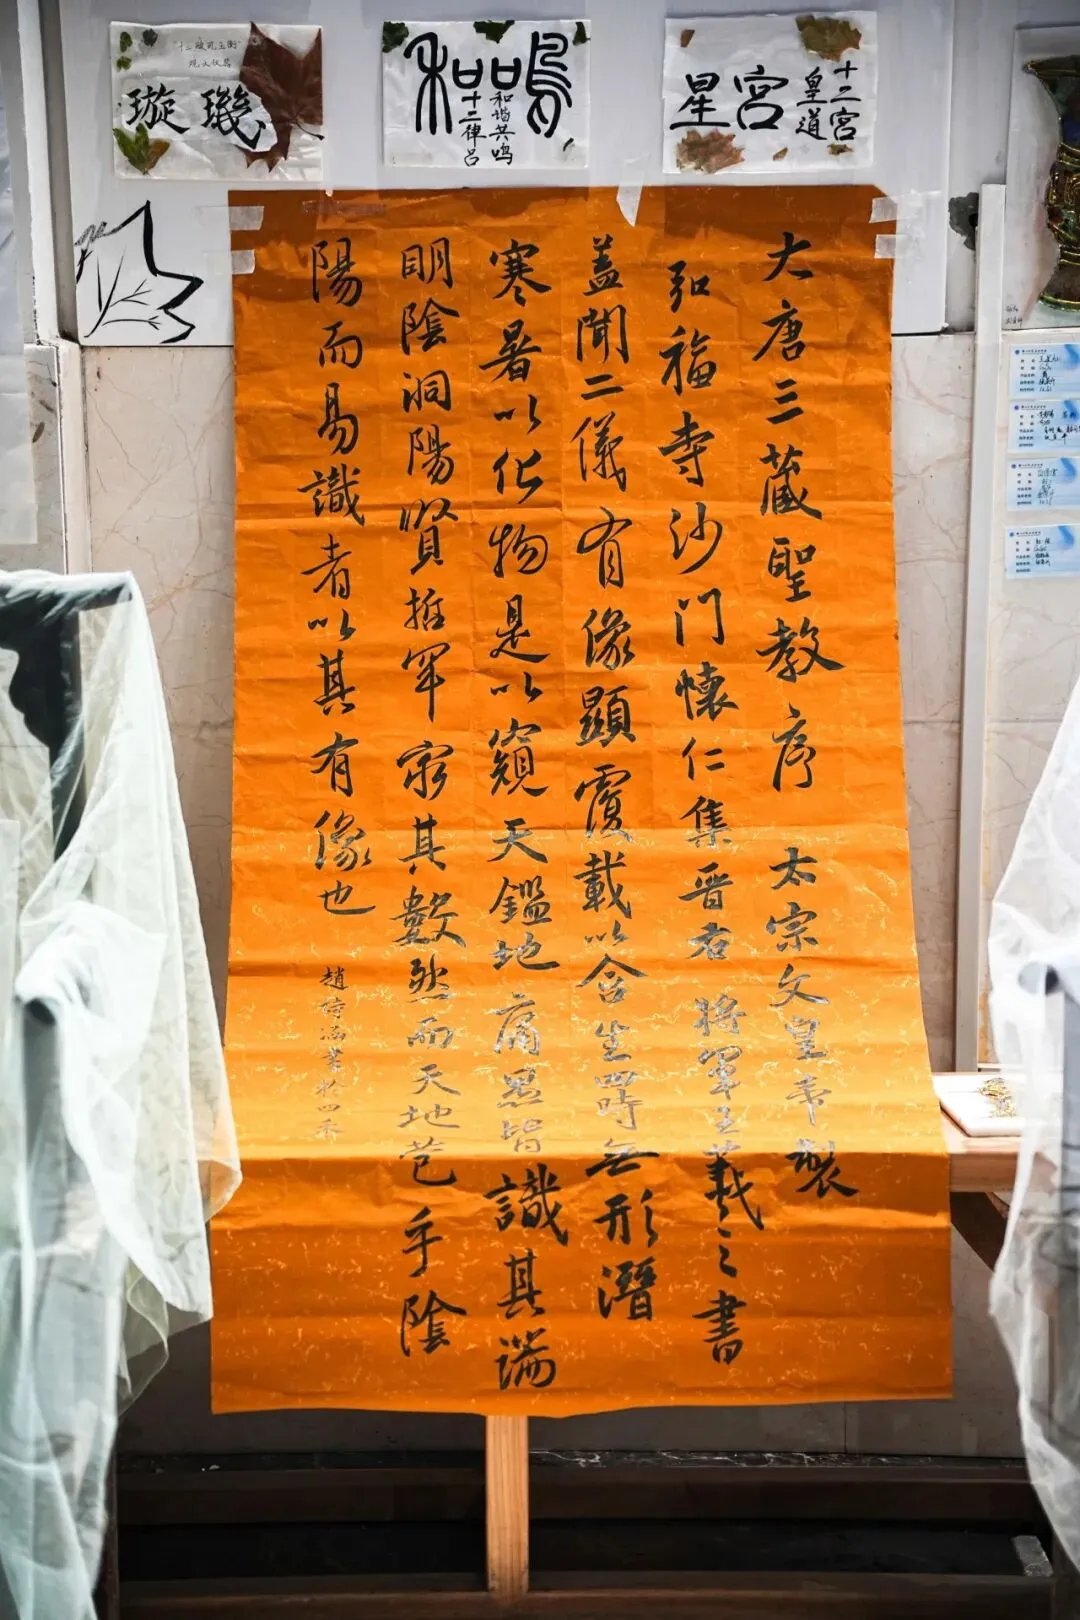 璇璣
和鳴
和谐共鸣
十二律吕
星宮
十二宮
皇道
大唐三藏聖教序 太宗文皇帝製
弘福寺沙门懷仁集晋右将軍王羲之書
蓋聞二儀有像顯覆載以含生四時無形潛
寒暑以化物是以窺天鑑地庸愚皆識其端
明陰洞陽賢哲罕窮其數然而天地苞乎陰
陽而易識者以其有像也